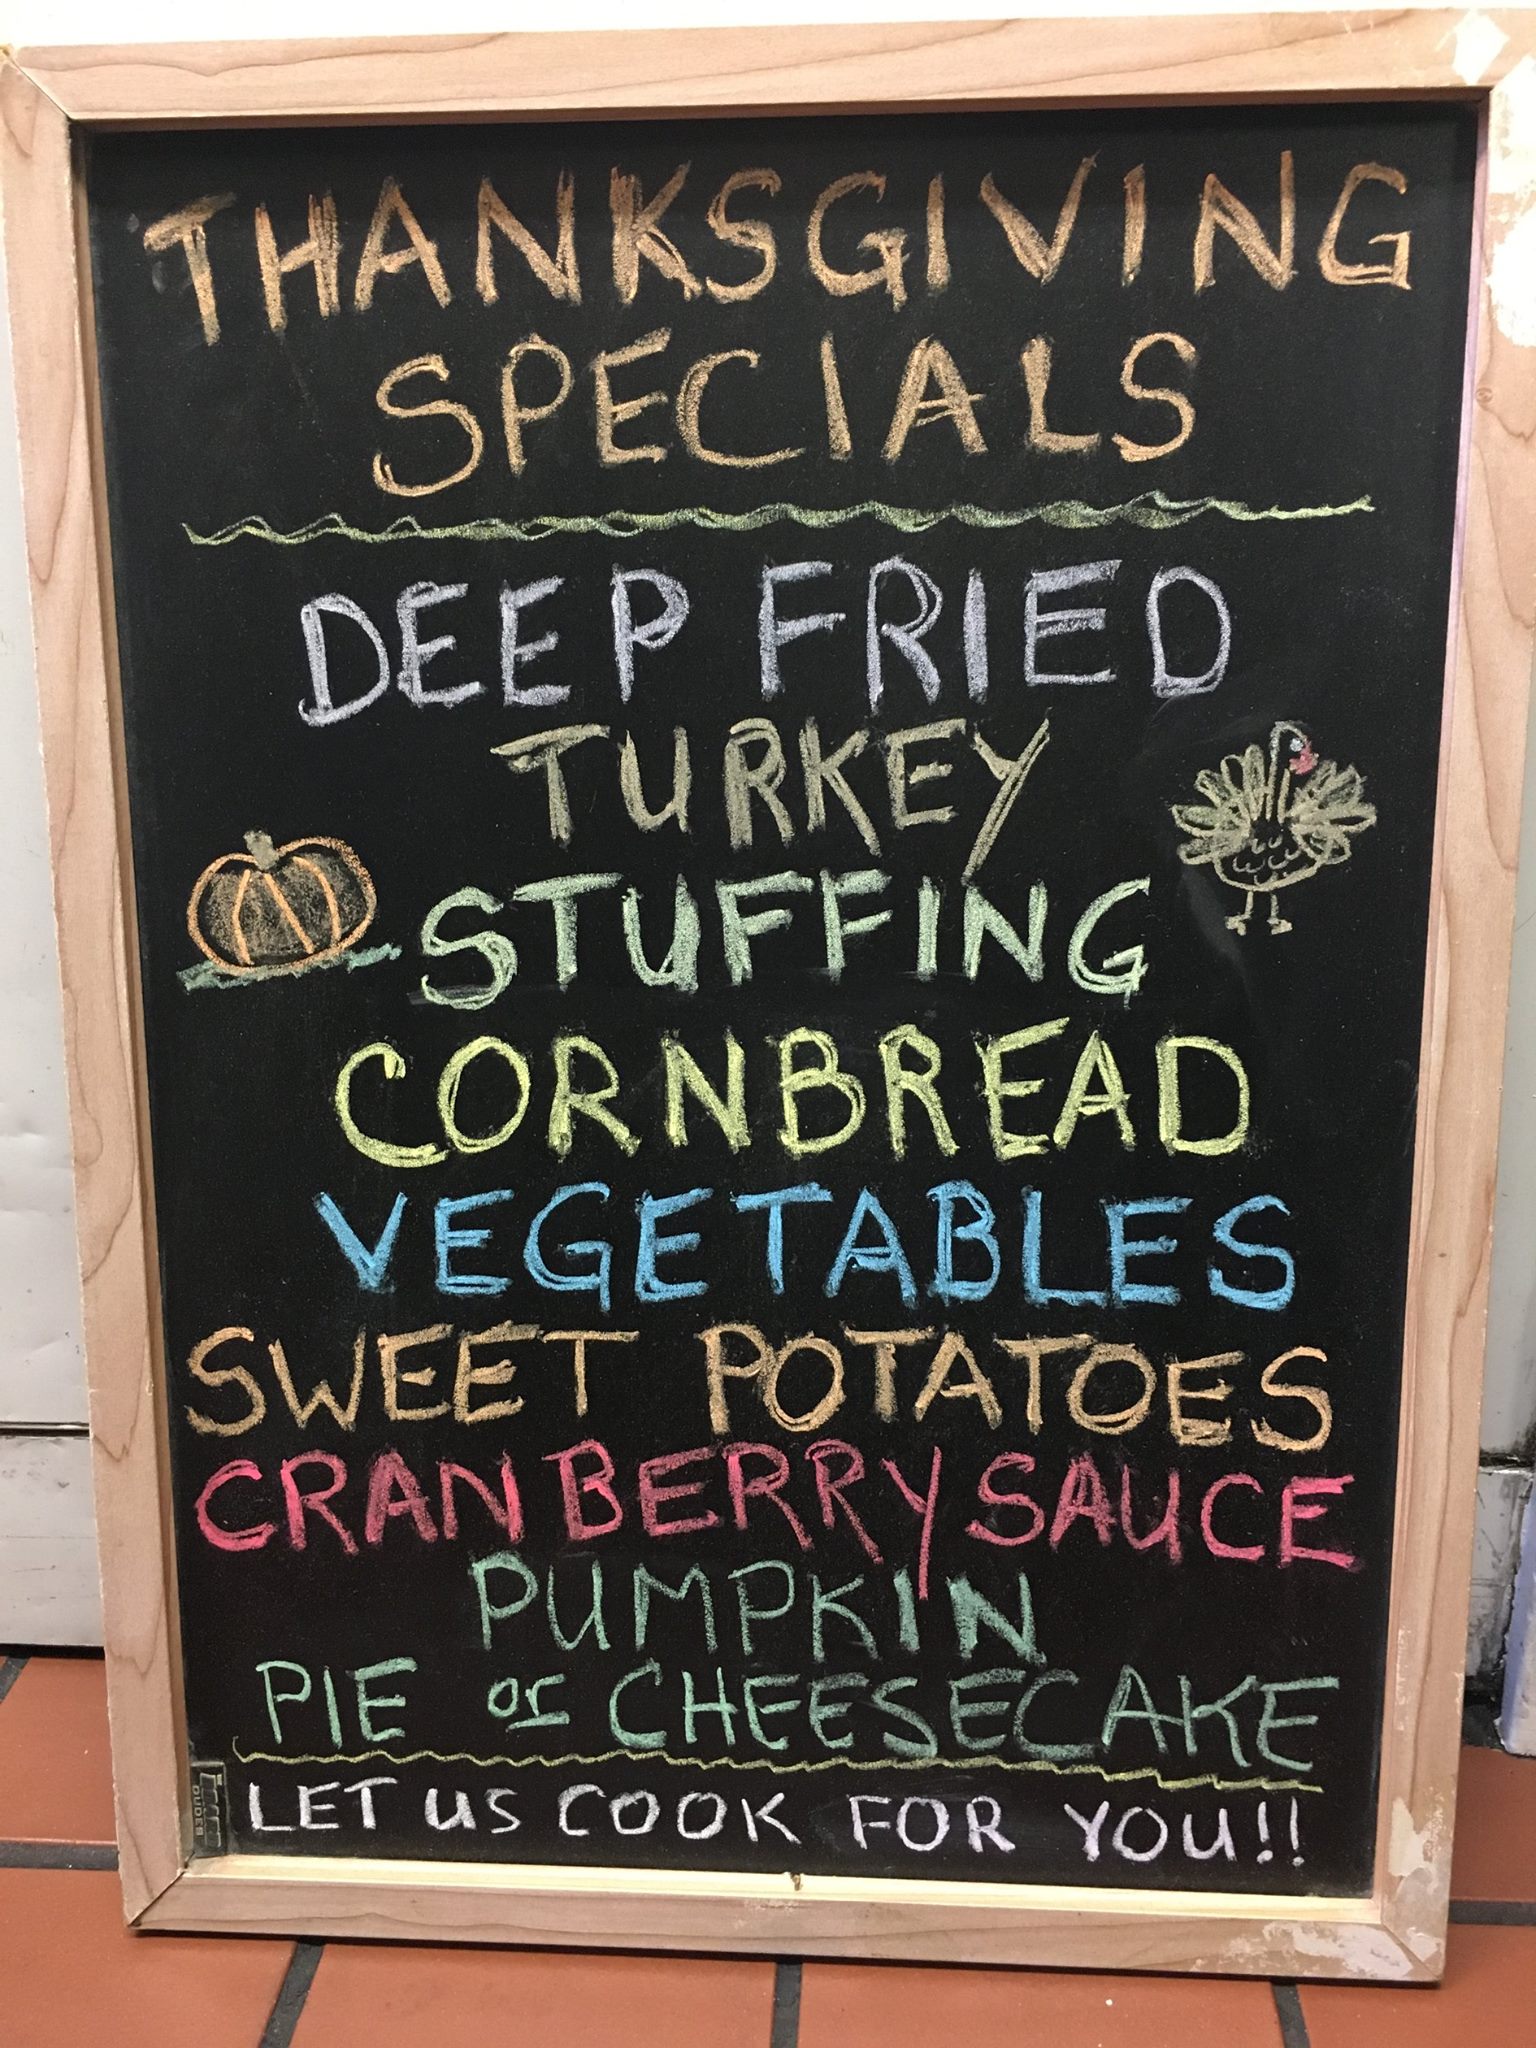 THANKSGIVING
SPECIALS
DEEP FRIED
TURKEY
STUFFING
CORNBREAD
VEGETABLES
SWEET POTATOES
CRANBERRY SAUCE
PUMPKIN
PIE or CHEESECAKE
LET US COOK FOR YOU!!